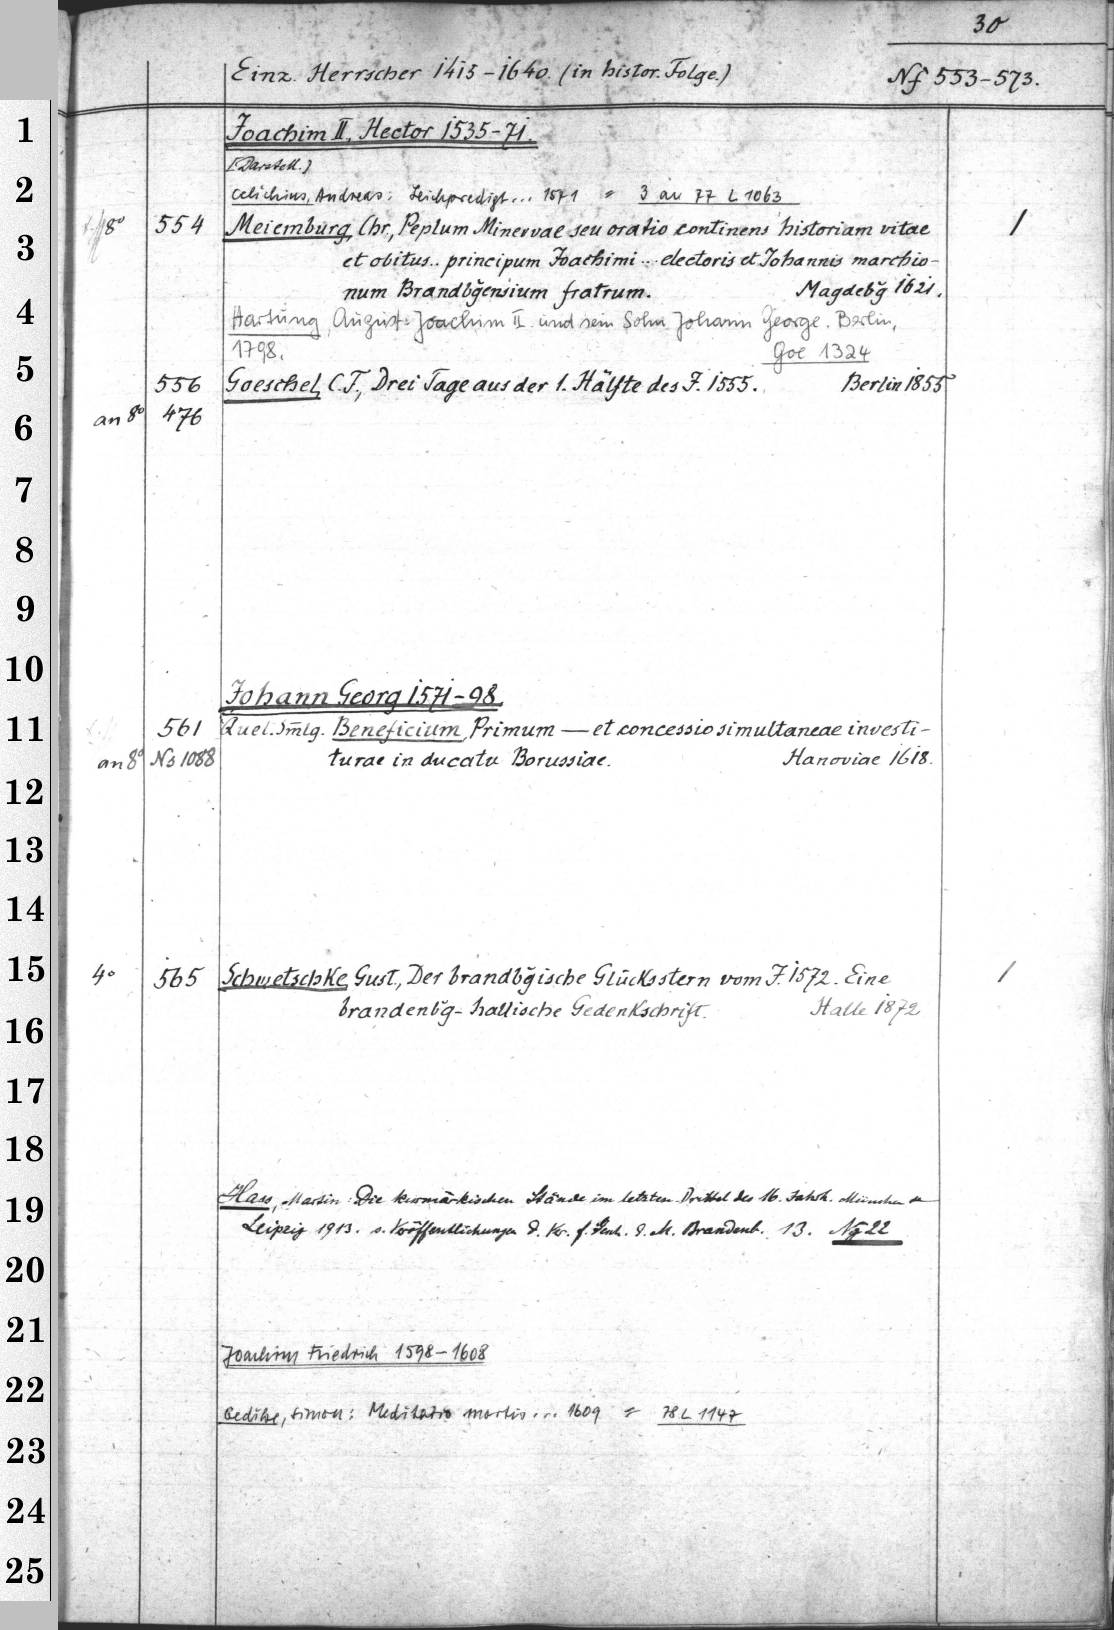 30
Einz. Herrscher 1415-1640. (in histor. Folge.) Nf 553-573.
Joachim II, Hector 1535-71.
[Darstell.]
Celichius, Andreas: Leichpredigt... 1571 = 3 an 77 L 1063
8° 554 Meiemburg, Chr., Peplum Minervae seu oratio continens historiam vitae 1
et obitus.. principum Joachimi... electoris et Johannis marchio-
num Brandbg̃ensium fratrum. Magdebg̃ 1621.
Hartung, August: Joachim II. und sein Sohn Johann George. Berlin,
1798. Goe 1324
556 Goeschel, C.F., Drei Tage aus der 1. Hälfte des J. 1555. Berlin 1855
an 8° 476
Johann Georg 1571-98.
561 Quel. Sm̃lg. Beneficium, Primum — et concessio simultaneae investi-
an 8° Ns 1088 turae in ducatu Borussiae. Hanoviae 1618.
4° 565 Schwetschke, Gust., Der brandbg̃ische Glücksstern vom J. 1572. Eine 1
brandenbg̃-hallische Gedenkschrift. Halle 1872
Hass, Martin: Die kurmärkischen Stände im letzten Drittel des 16. Jahrh. München u
Leipzig 1913. s. Veröffentlichungen d. Ver. f. Gesch. d. M. Brandenb. 13. Ng 22
Joachim Friedrich 1598-1608
Gedike, Simon: Meditatio mortis... 1609 = 78 L 1147
1
2
3
4
5
6
7
8
9
10
11
12
13
14
15
16
17
18
19
20
21
22
23
24
25